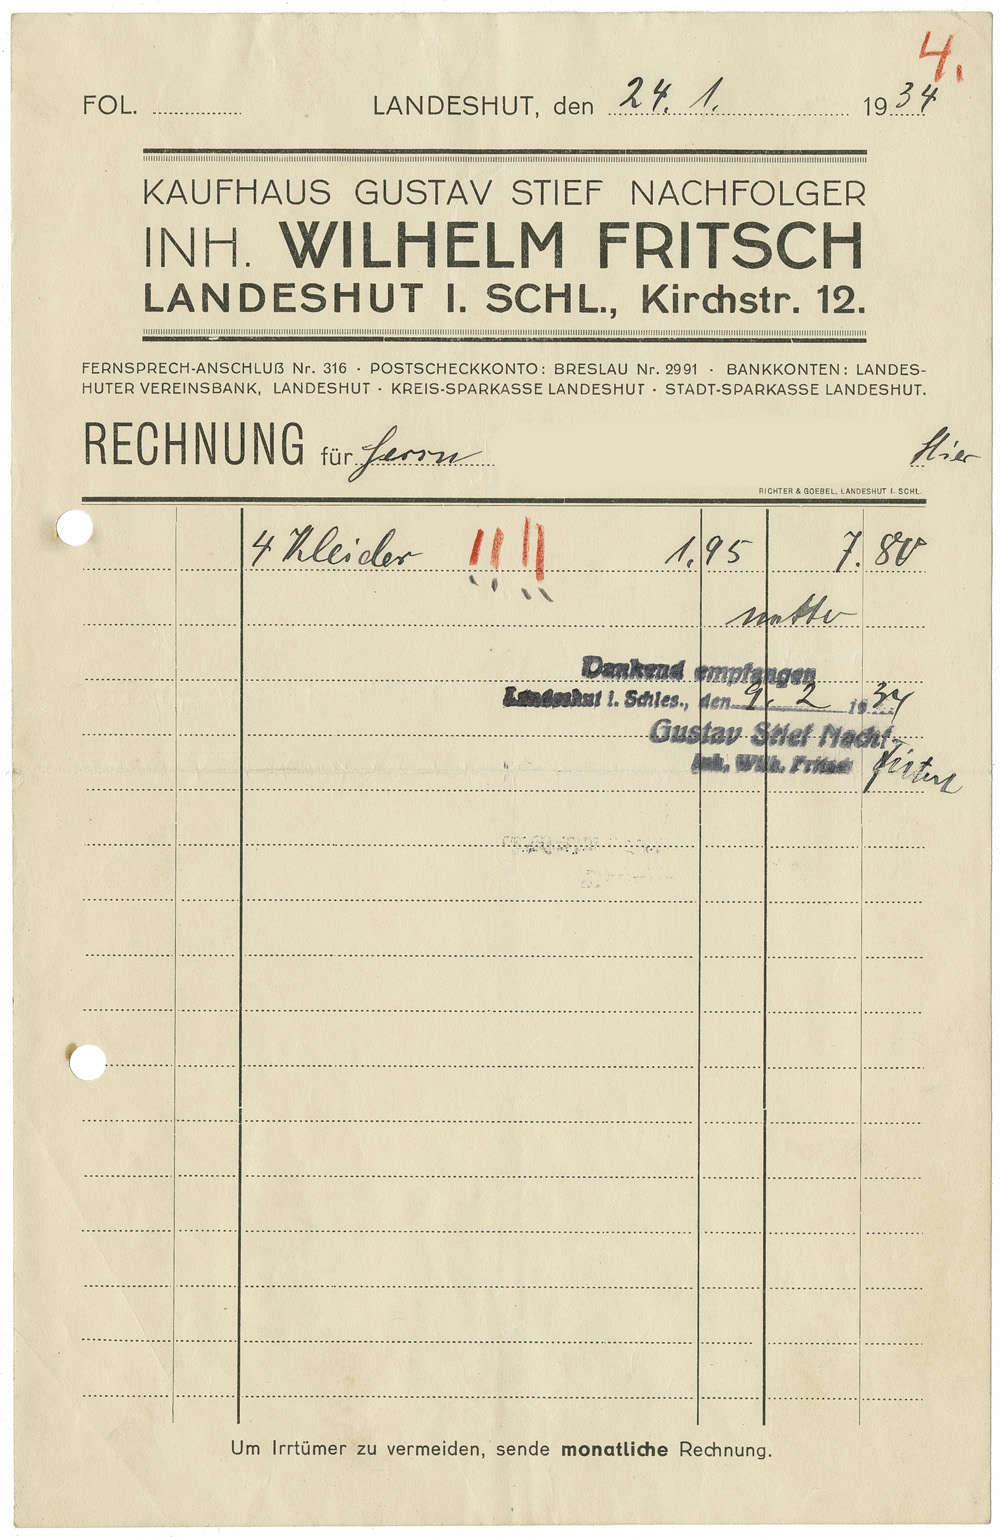 4.
FOL. LANDESHUT, den 24. 1. 1934
KAUFHAUS GUSTAV STIEF NACHFOLGER
INH. WILHELM FRITSCH
LANDESHUT I. SCHL., Kirchstr. 12.
FERNSPRECH-ANSCHLUß Nr. 316 · POSTSCHECKKONTO: BRESLAU Nr. 2991 · BANKKONTEN: LANDES-
HUTER VEREINSBANK, LANDESHUT · KREIS-SPARKASSE LANDESHUT · STADT-SPARKASSE LANDESHUT.
RECHNUNG für Herrn Hier
RICHTER & GOEBEL, LANDESHUT I. SCHL.
4 Kleider 1.95 7.80
netto
Dankend empfangen
Landeshut i. Schles., den 9. 2 1934
Gustav Stief Nachf.
Inh. Wilh. Fritsch
Um Irrtümer zu vermeiden, sende monatliche Rechnung.